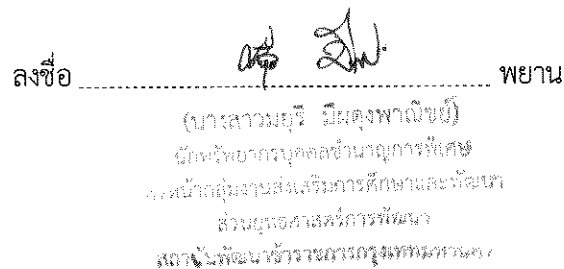 ลงชื่อ ........................................ พยาน
(นางสาวมยุรี มีผดุงพาณิชย์)
นักทรัพยากรบุคคลชำนาญการพิเศษ
หัวหน้ากลุ่มงานส่งเสริมการศึกษาและพัฒนา
ส่วนยุทธศาสตร์การพัฒนา
สถาบันพัฒนาข้าราชการกรุงเทพมหานคร